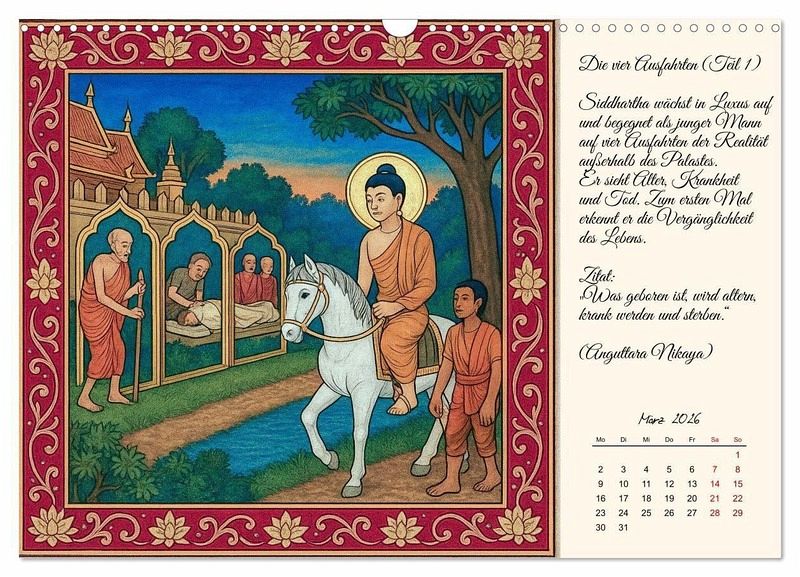 Die vier Ausfahrten (Teil 1)
Siddhartha wächst in Luxus auf
und begegnet als junger Mann
auf vier Ausfahrten der Realität
außerhalb des Palastes.
Er sieht Alter, Krankheit
und Tod. Zum ersten Mal
erkennt er die Vergänglichkeit
des Lebens.
Zitat:
„Was geboren ist, wird altern,
krank werden und sterben.“
(Anguttara Nikaya)
März 2026
Mo Di Mi Do Fr Sa So
1
2 3 4 5 6 7 8
9 10 11 12 13 14 15
16 17 18 19 20 21 22
23 24 25 26 27 28 29
30 31